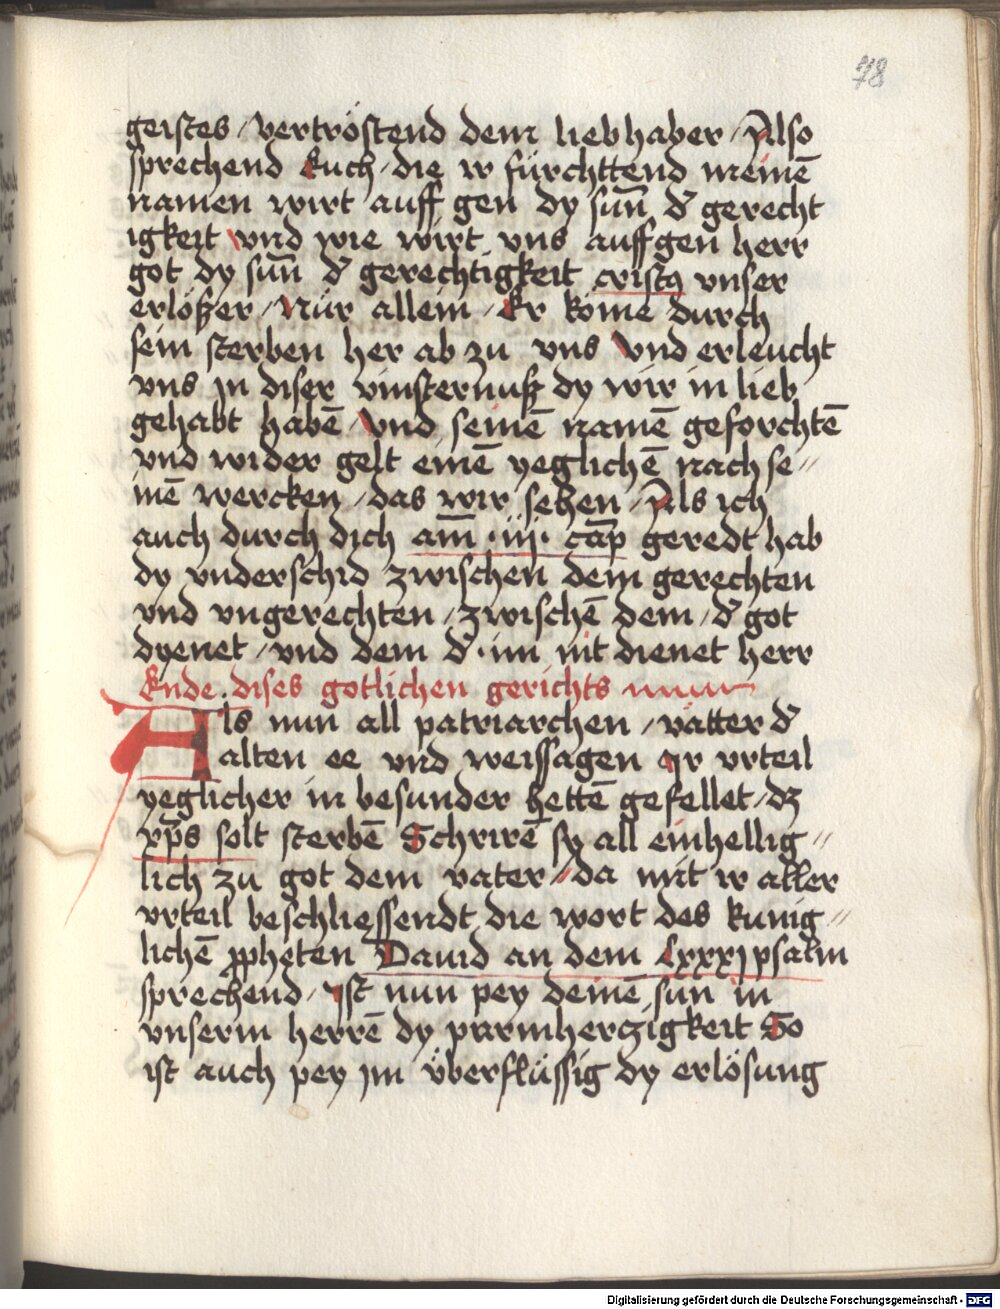 78
geistes / vertröstend dem liebhaber / Also
sprechend Euch / die ir fürchttend meinē
namen wirt auff gen dy suñ d' gerecht
igkeit vnd wie wirt vns auffgen herr
got dy suñ d' gerechtigkeit cristꝯ vnser
erlößer / Nur allein / Er kōme durch
sein sterben her ab zu vns Vnd erleucht
vns jn diser vinsternuß dy wir in lieb
gehabt habē / Vnd seinē namē geforchtē
vnd wider gelt einē yeglichē nach se〃
inē wercken / das wir sehen / Als ich
auch durch dich am̄ ·iij· cap̄ geredt hab
dy vnderschid zwischen dem gerechten
vnd vngerechten / zwischē dem / d' got
dyenet / vnd dem d' · im nit dienet herr
Ende . dises gotlichen gerichts
Als nun all patriarchen / vätter d'
alten ee vnd weissagen Jr vrteil
yeglicher in besunder hettē gefellet / dz
xp̄s solt sterbē Schrirē sy all einhellig〃
lich zu got dem vater / da mit ir aller
vrteil beschliessendt die wort des kunig〃
lichē ꝓpheten Dauid an dem Lxxxj psalm
sprechend / Jst nun pey deinē sun in
vnserm herrē dy parmherczigkeit So
ist auch pey jm vberflüssig dy erlösung
Digitalisierung gefördert durch die Deutsche Forschungsgemeinschaft - DFG